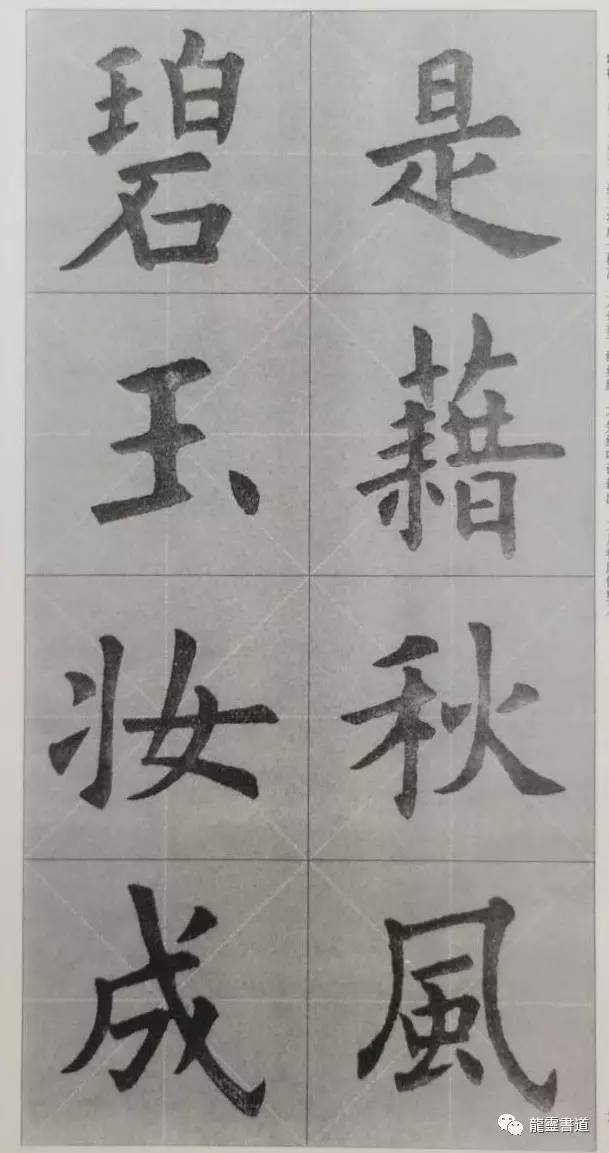 是藉秋風
碧玉妆成
龍靈書道